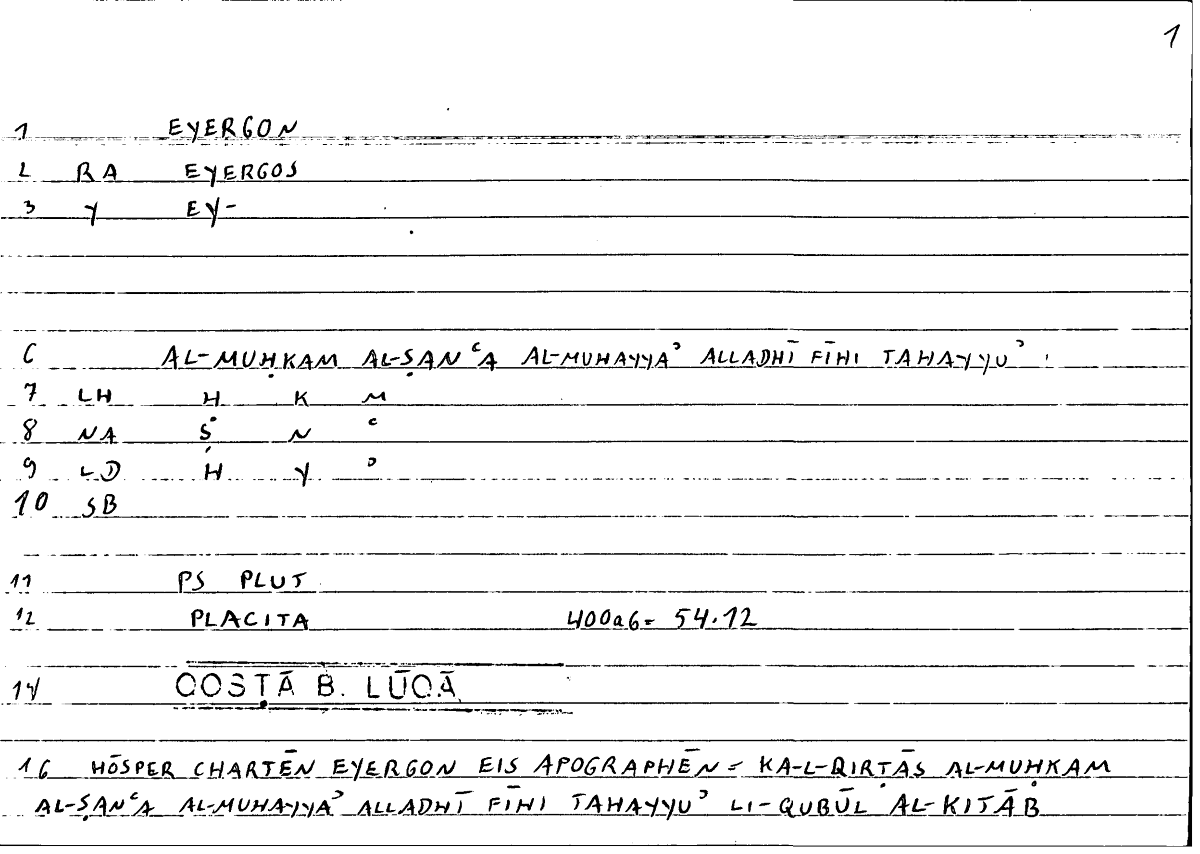 1
1 EYERGON
2 RA EYERGOS
3 Y EY-
6 AL-MUḤKAM AL-ṢANʿA AL-MUHAYYAʾ ALLADHĪ FĪHI TAHAYYUʾ
7 LH Ḥ K M
8 NA Ṣ N ʿ
9 LD H Y ʾ
10 SB
11 PS PLUT
12 PLACITA 400a6= 54.12
14 QOSṬĀ B. LŪQĀ
16 HŌSPER CHARTĒN EYERGON EIS APOGRAPHĒN = KA-L-QIRṬĀS AL-MUḤKAM
AL-ṢANʿA AL-MUHAYYAʾ ALLADHĪ FĪHI TAHAYYUʾ LI-QUBŪL AL-KITĀB